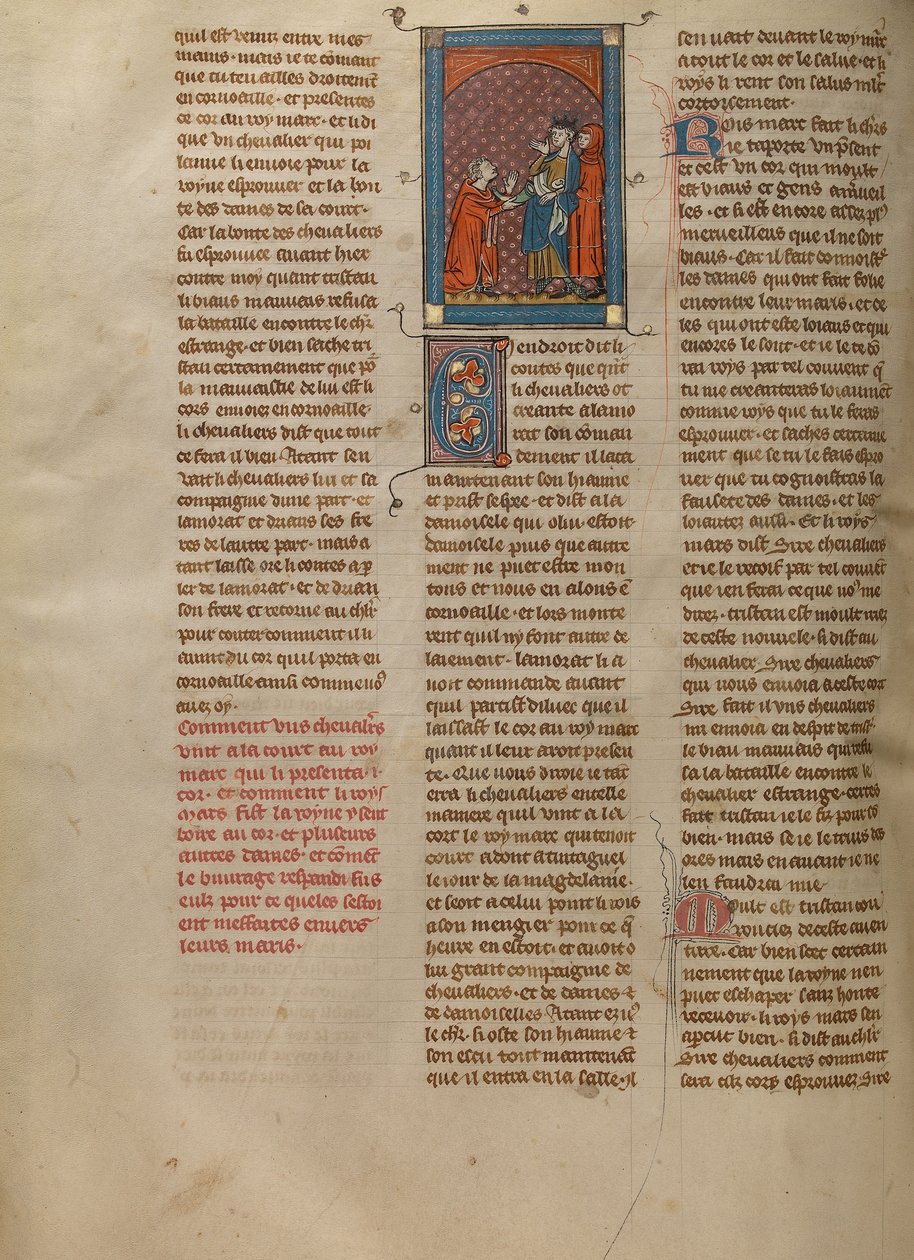 quil est venuz entre mes
mains · mais ie te cōmant
que tu ten ailles droitemēt
en cornoaille · et presentes
ce cor au roy marc · et li di
que vn cheualier qui poi
laime li enuoie pour la
royne esprouuer et la bon
te des dames de sa court ·
Car la bonte des cheualiers
fu esprouuee auant hier
contre moy quant tristan
li biaus mauuais refusa
la bataille encontre le chr̄
estrange · et bien sache tri
stan certainement que po᷑
la mauuaistie de lui est li
cors enuoiez en cornoaille ·
li cheualiers dist que tout
ce fera il bien Atant sen
vait li cheualiers lui et sa
compaignie dune part · et
lamorat et drians ses fre
res de lautre part · mais a
tant laisse ore li contes a p
ler de lamorat · et de drian
son frere et retorne au chlr̄
pour conter comment il li
auint du cor quil porta en
cornoaille ainsi comme uoꝰ
auez oy ·
Comment vns cheualrs̄
vint a la court au roy
marc qui li presenta · i ·
cor · et comment li roys
Mars fist la royne yseut
boire au cor · et pluseurs
autres dames · et cōmēt
le buurage respandi sus
eulz pour ce queles sestoi
ent meffaites enuers
leurs maris ·
Cendroit dit li
contes que qn̄t
li cheualiers ot
creante a lamo
rat son cōman
dement il laca
maintenant son hiaume
et prist sespee · et dist a la
damoisele qui o lui estoit
damoisele puis que autre
ment ne puet estre mon
tons et nous en alons ē
cornoaille · et lors monte
rent quil ny font autre de
laiement · lamorat li a
uoit commande auant
quil partist diluec que il
laissast le cor au roy marc
quant il leur auroit presen
te · Que uous diroie ie tāt
erra li cheualiers en telle
maniere quil vint a la
cort le roy marc qui tenoit
court adont a tintaguel
le iour de la magdelaine ·
et seoit a celui point li rois
a son mengier pour ce q̄
heure en estoit · et auoit o
lui grant compaignie de
cheualiers · et de dames ⁊
de damoiselles Atant ez uꝰ
le chr̄ · si oste son hiaume ⁊
son escu tout maintenāt
que il entra en la salle · Il
sen uait deuant le roy mr̄c
a tout le cor et le salue · et li
roys li rent son salus mlt̄
cortoisement ·
Rois marc fait li chr̄s
ie taporte vn p̄sent
et cest vn cor qui moult
est biaus et gens a m̄ueil
les · et si est encore assez plꝰ
merueilleus que il ne soit
biaus · Car il fait connoistr̄
les dames qui ont fait folie
encontre leur maris · et ce
les qui ont este loiaus et qui
encores le sont · et ie le te dō
rai roys par tel couuent q̄
tu me creanteras loiaumēt
comme roys que tu le feras
esprouuer · et saches certaine
ment que se tu le fais espro
uer que tu cognoistras la
faussete des dames · et les
loiautez aussi · Et li roys
mars dist Sire cheualiers
et ie le recoif par tel couuēt
que ien ferai ce que uoꝰ me
direz · tristan est moult irez
de ceste nouuele · si dist au
cheualier Sire cheualiers
qui uous enuoia a ceste cort
Sire fait il vns cheualiers
mi enuoia en despit de trist̄
le biau mauuais qui refu
sa la bataille encontre le
cheualier estrange · certes
fait tristan ie le fiz pour sō
bien · mais se ie le truis des
ores mais en auant ie ne
len faudrai mie
Moult est tristan cou
rouciez de ceste auen
ture · Car bien scet certain
nement que la royne nen
puet eschaper sanz honte
receuoir · li roys mars sen
apcut bien · si dist au chlr̄
Sire cheualiers comment
sera cilz cors esprouuez Sire